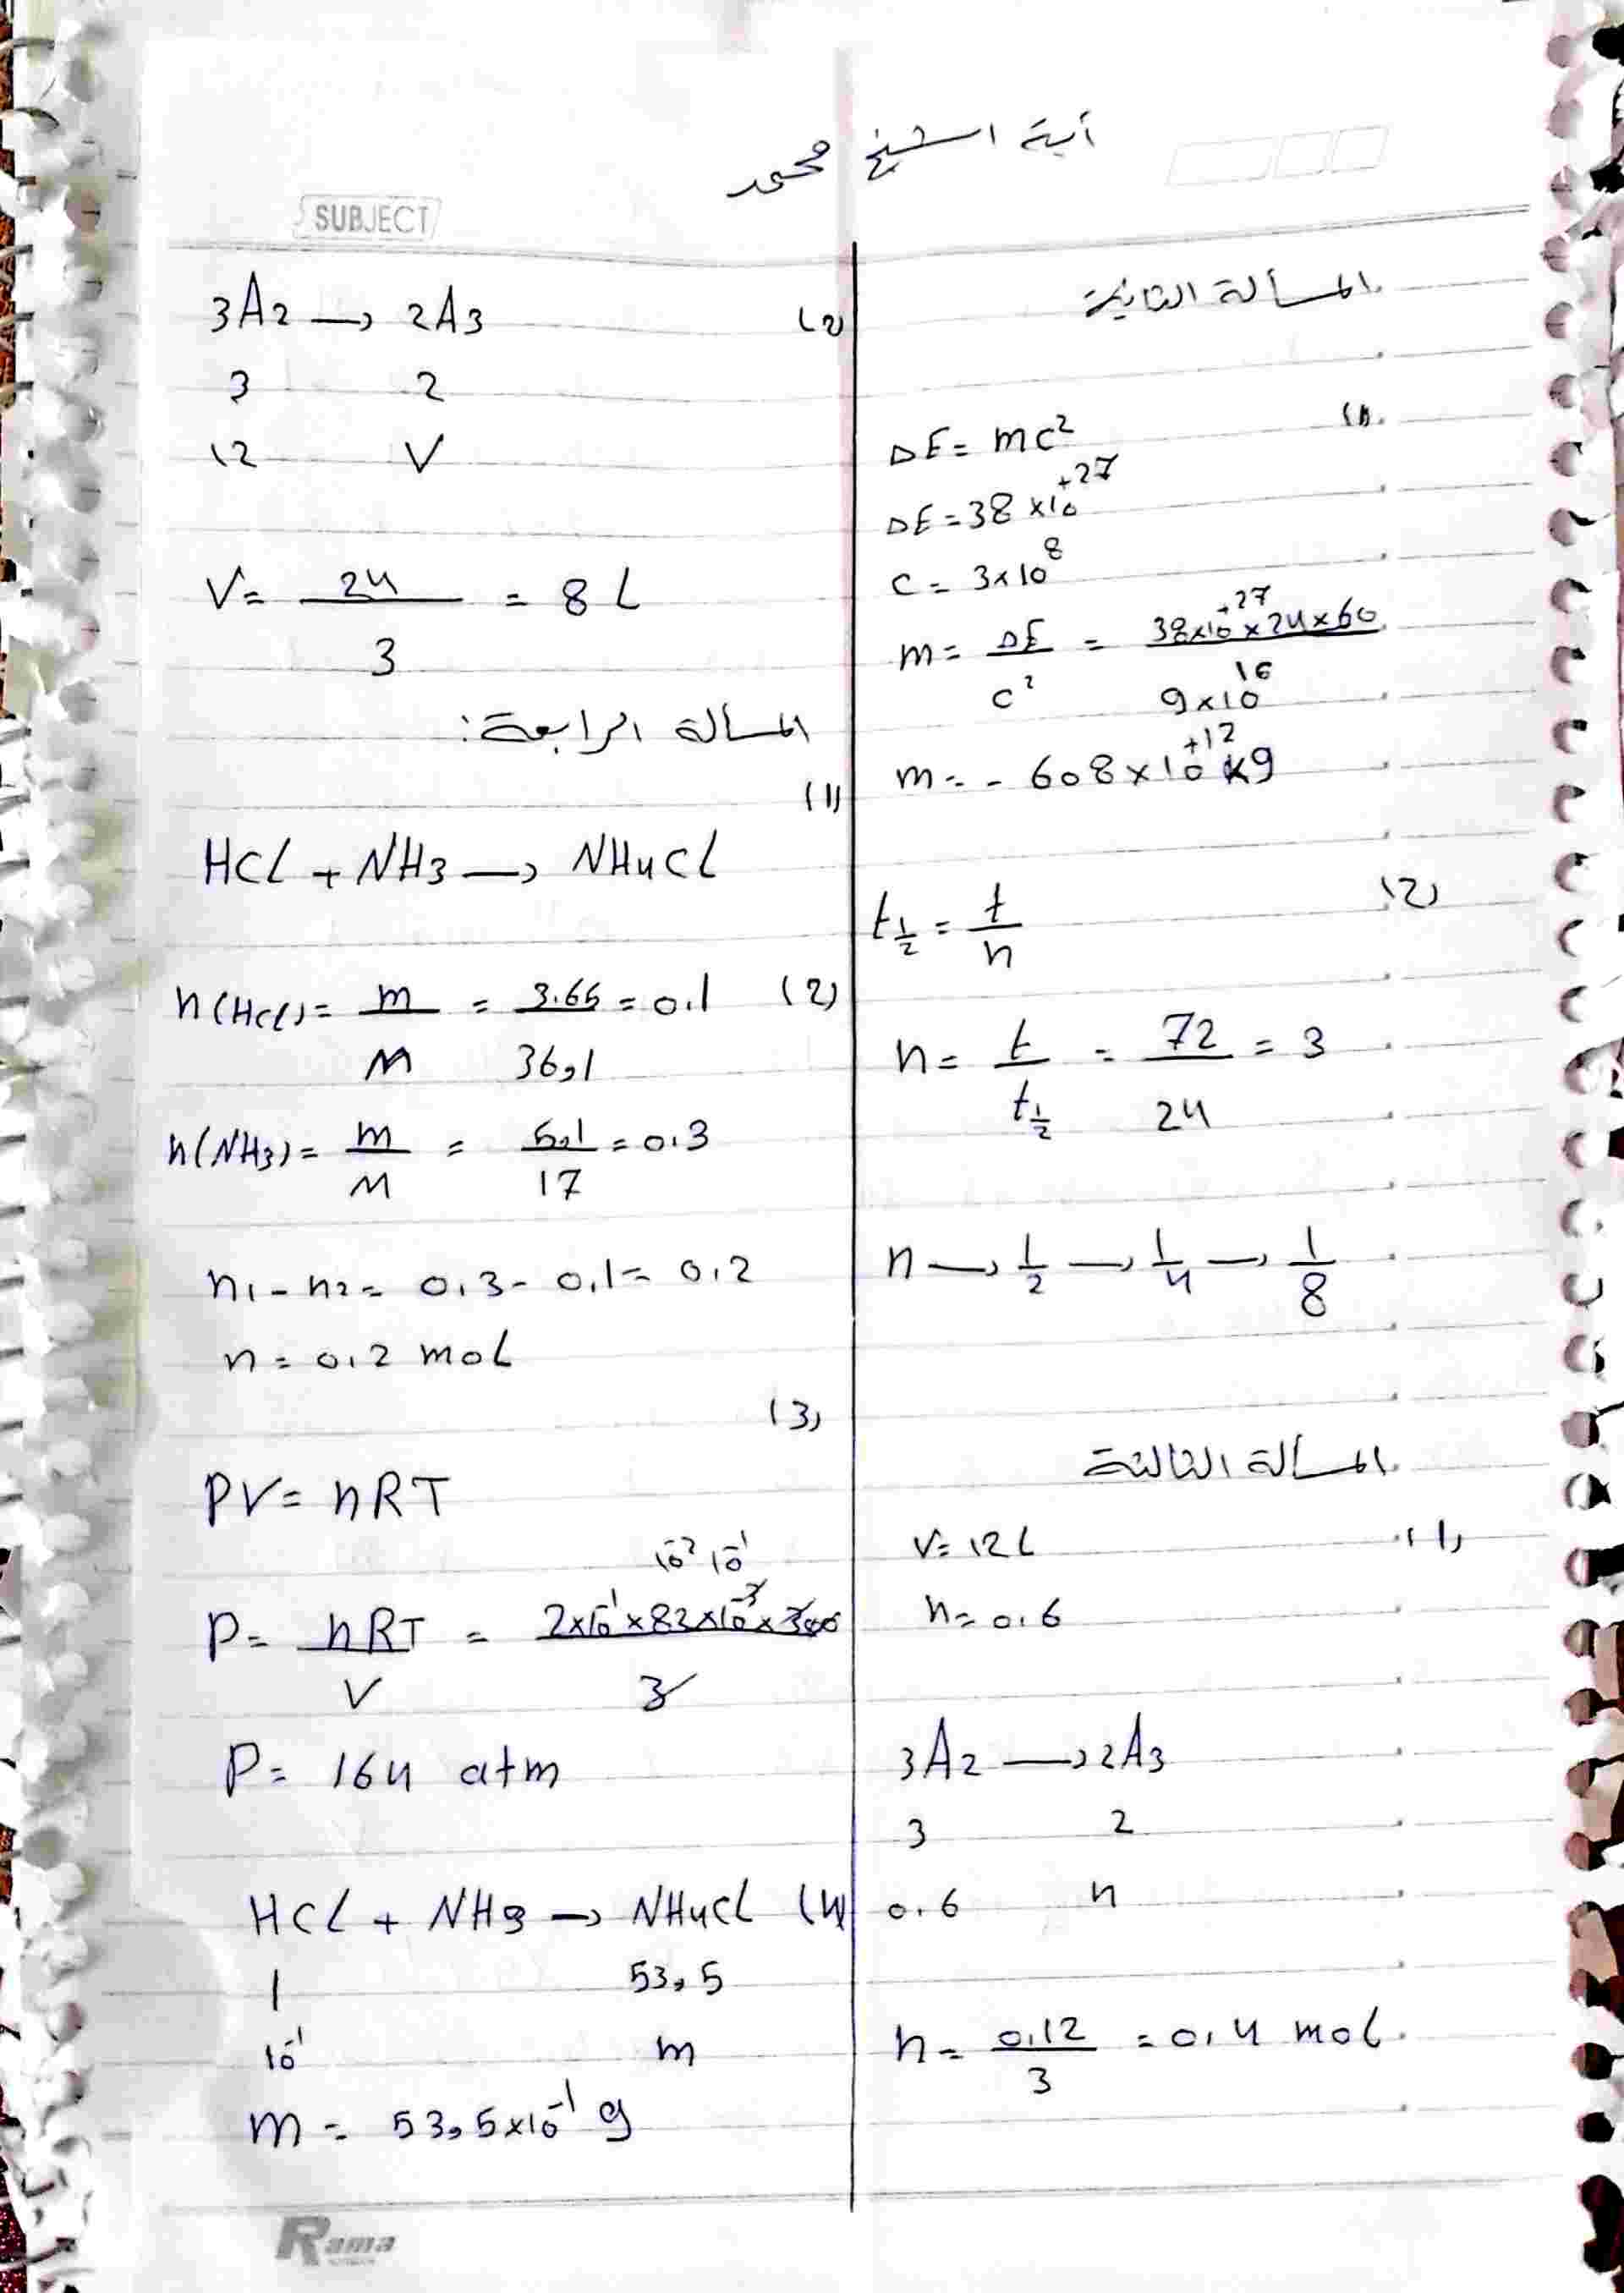 آية الشيخ محمد
SUBJECT
المسألة الثانية
(1)
ΔE = mc²
ΔE = 38 × 10⁺²⁷
c = 3 × 10⁸
m = ΔE / c² = 38×10⁺²⁷ × 24 × 60 / 9×10¹⁶
m = - 608 × 10⁺¹² kg
(2)
t½ = t / n
n = t / t½ = 72 / 24 = 3
n → 1/2 → 1/4 → 1/8
المسألة الثالثة
(1)
V = 12 L
n = 0.6
3A2 → 2A3
3 2
0.6 n
n = 0.12 / 3 = 0.4 mol
(2)
3A2 → 2A3
3 2
12 V
V = 24 / 3 = 8 L
المسألة الرابعة:
(1)
HCl + NH3 → NH4Cl
(2) n(HCl) = m / M = 3.65 / 36,1 = 0.1
n(NH3) = m / M = 5,1 / 17 = 0.3
n1 - n2 = 0.3 - 0.1 = 0.2
n = 0.2 mol
(3)
PV = nRT
10⁻² 10⁻¹
P = nRT / V = 2×10⁻¹ × 82×10⁻³ × 300 / 3
P = 164 atm
(4) HCl + NH3 → NH4Cl
1 53,5
10⁻¹ m
m = 53,5×10⁻¹ g
Rama